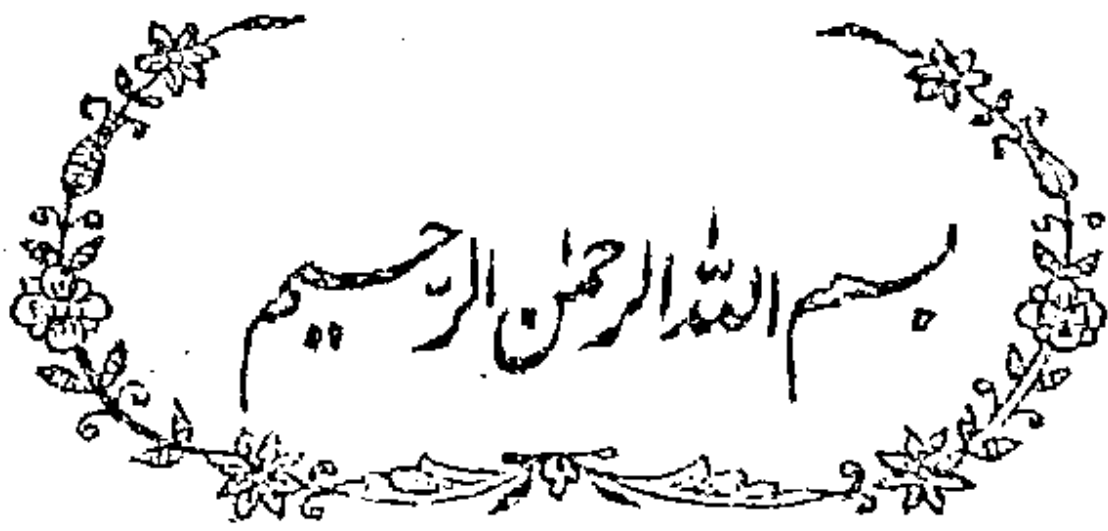 بسم الله الرحمٰن الرّحيم